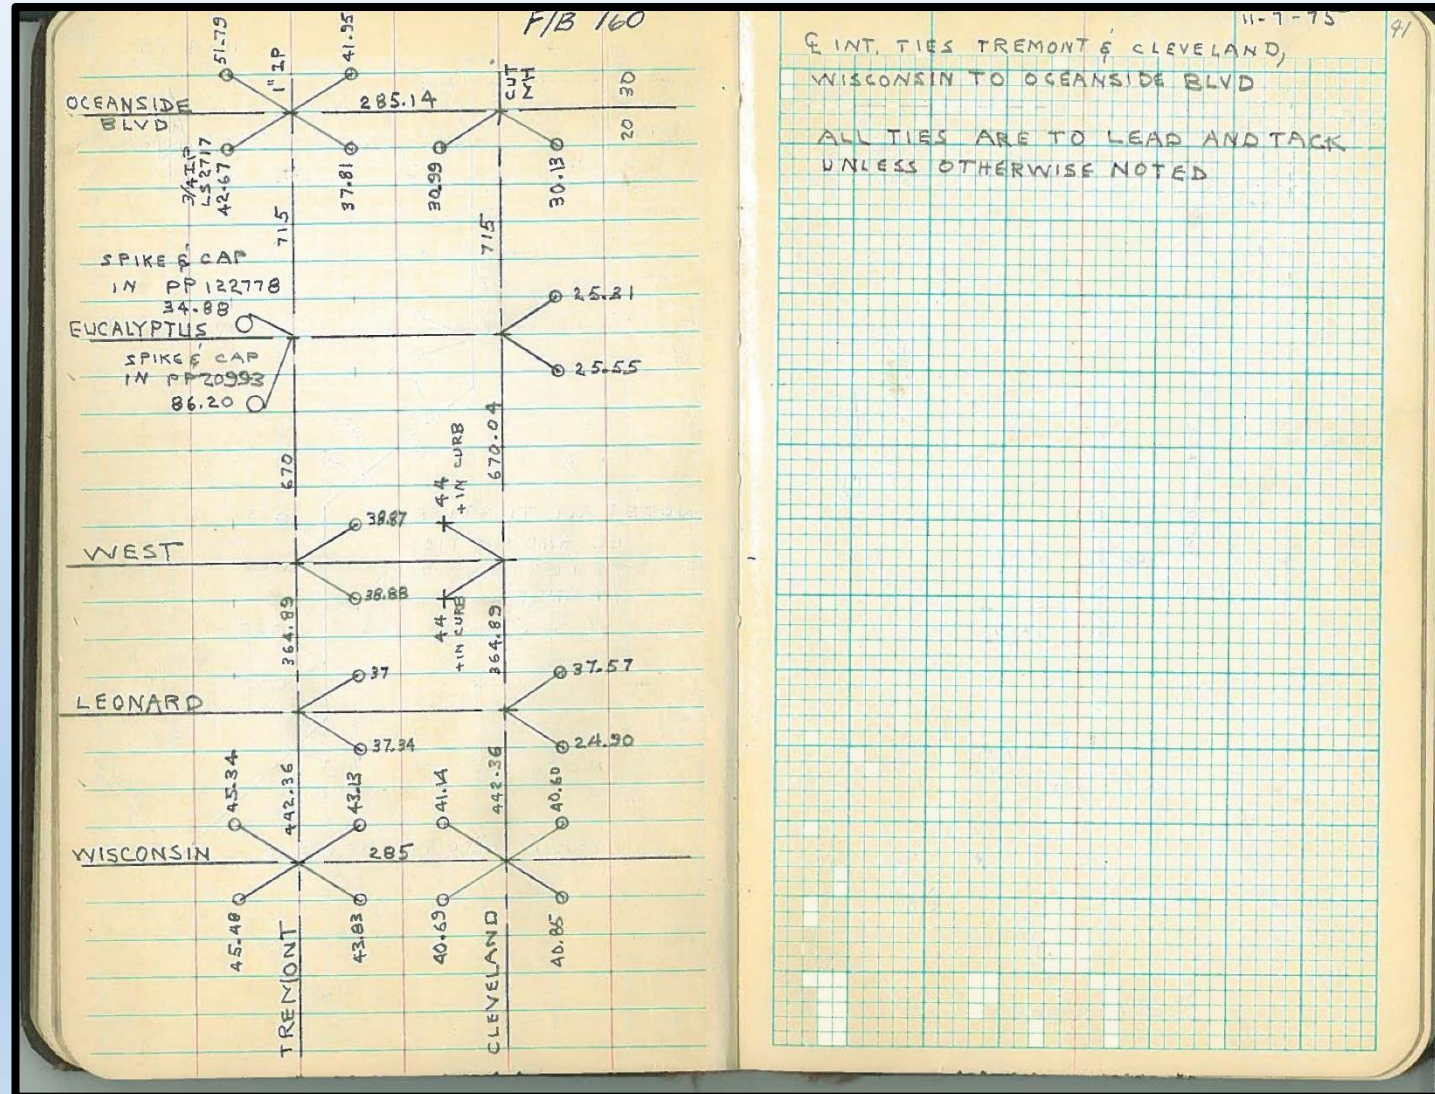 F/B 160
51.79
1" IP
41.95
CUT
MH
OCEANSIDE
BLVD
285.14
20 30
3/4 IP
LS 2717
42.67
37.81
30.99
30.13
715
715
SPIKE & CAP
IN PP 122778
34.88
EUCALYPTUS
25.55
SPIKE & CAP
IN PP 20993
86.20
670
670.04
44
+ IN CURB
38.87
WEST
38.88
44
+ IN CURB
364.89
364.89
37
37.57
LEONARD
37.34
24.90
45.34
442.36
43.13
41.14
442.36
40.60
WISCONSIN
285
45.48
43.83
40.69
40.85
TREMONT
CLEVELAND
11-7-75
41
℄ INT. TIES TREMONT & CLEVELAND,
WISCONSIN TO OCEANSIDE BLVD
ALL TIES ARE TO LEAD AND TACK
UNLESS OTHERWISE NOTED